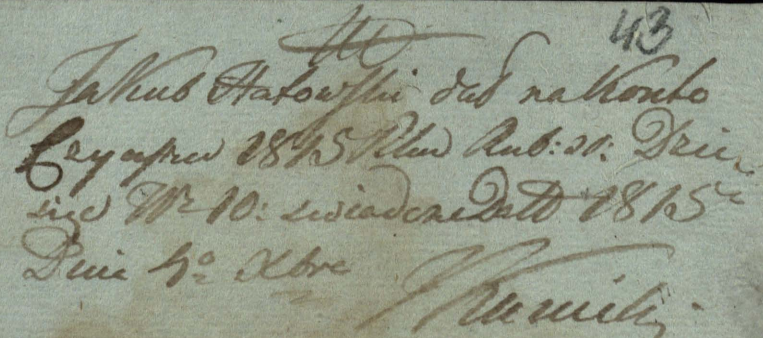 43
Jakub Hatowski dał na Konto
Czynszu 1815 Roku Rub: sr: Dzie
sięć Nr 10: świadczę Datt 1815
Dnia 4° Xbra